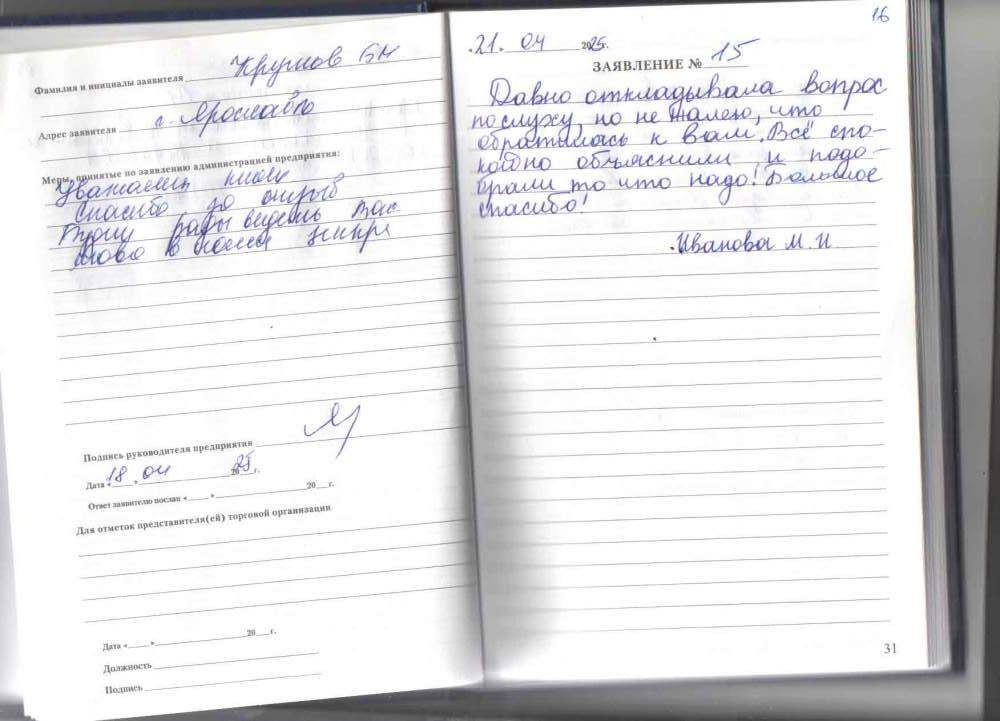 Фамилия и инициалы заявителя Крумов БН
Адрес заявителя г. Ярославль
Меры, принятые по заявлению администрацией предприятия:
Уважаемый
Спасибо за отзыв
рады видеть Вас
снова в нашем
Подпись руководителя предприятия
Дата « 18 » 04 2025 г.
Ответ заявителю послан «____» 20___г.
Для отметок представителя(ей) торговой организации
Дата «____» 20___г.
Должность
Подпись
16
«21» 04 2025г.
ЗАЯВЛЕНИЕ № 15
Давно откладывала вопрос
по слуху, но не жалею, что
обратилась к вам. Всё спо-
койно объяснили и подо-
брали то что надо! Большое
спасибо!
Иванова М. И
31